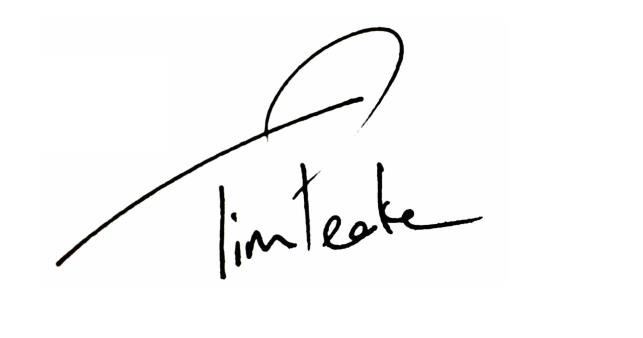 Tim Peake